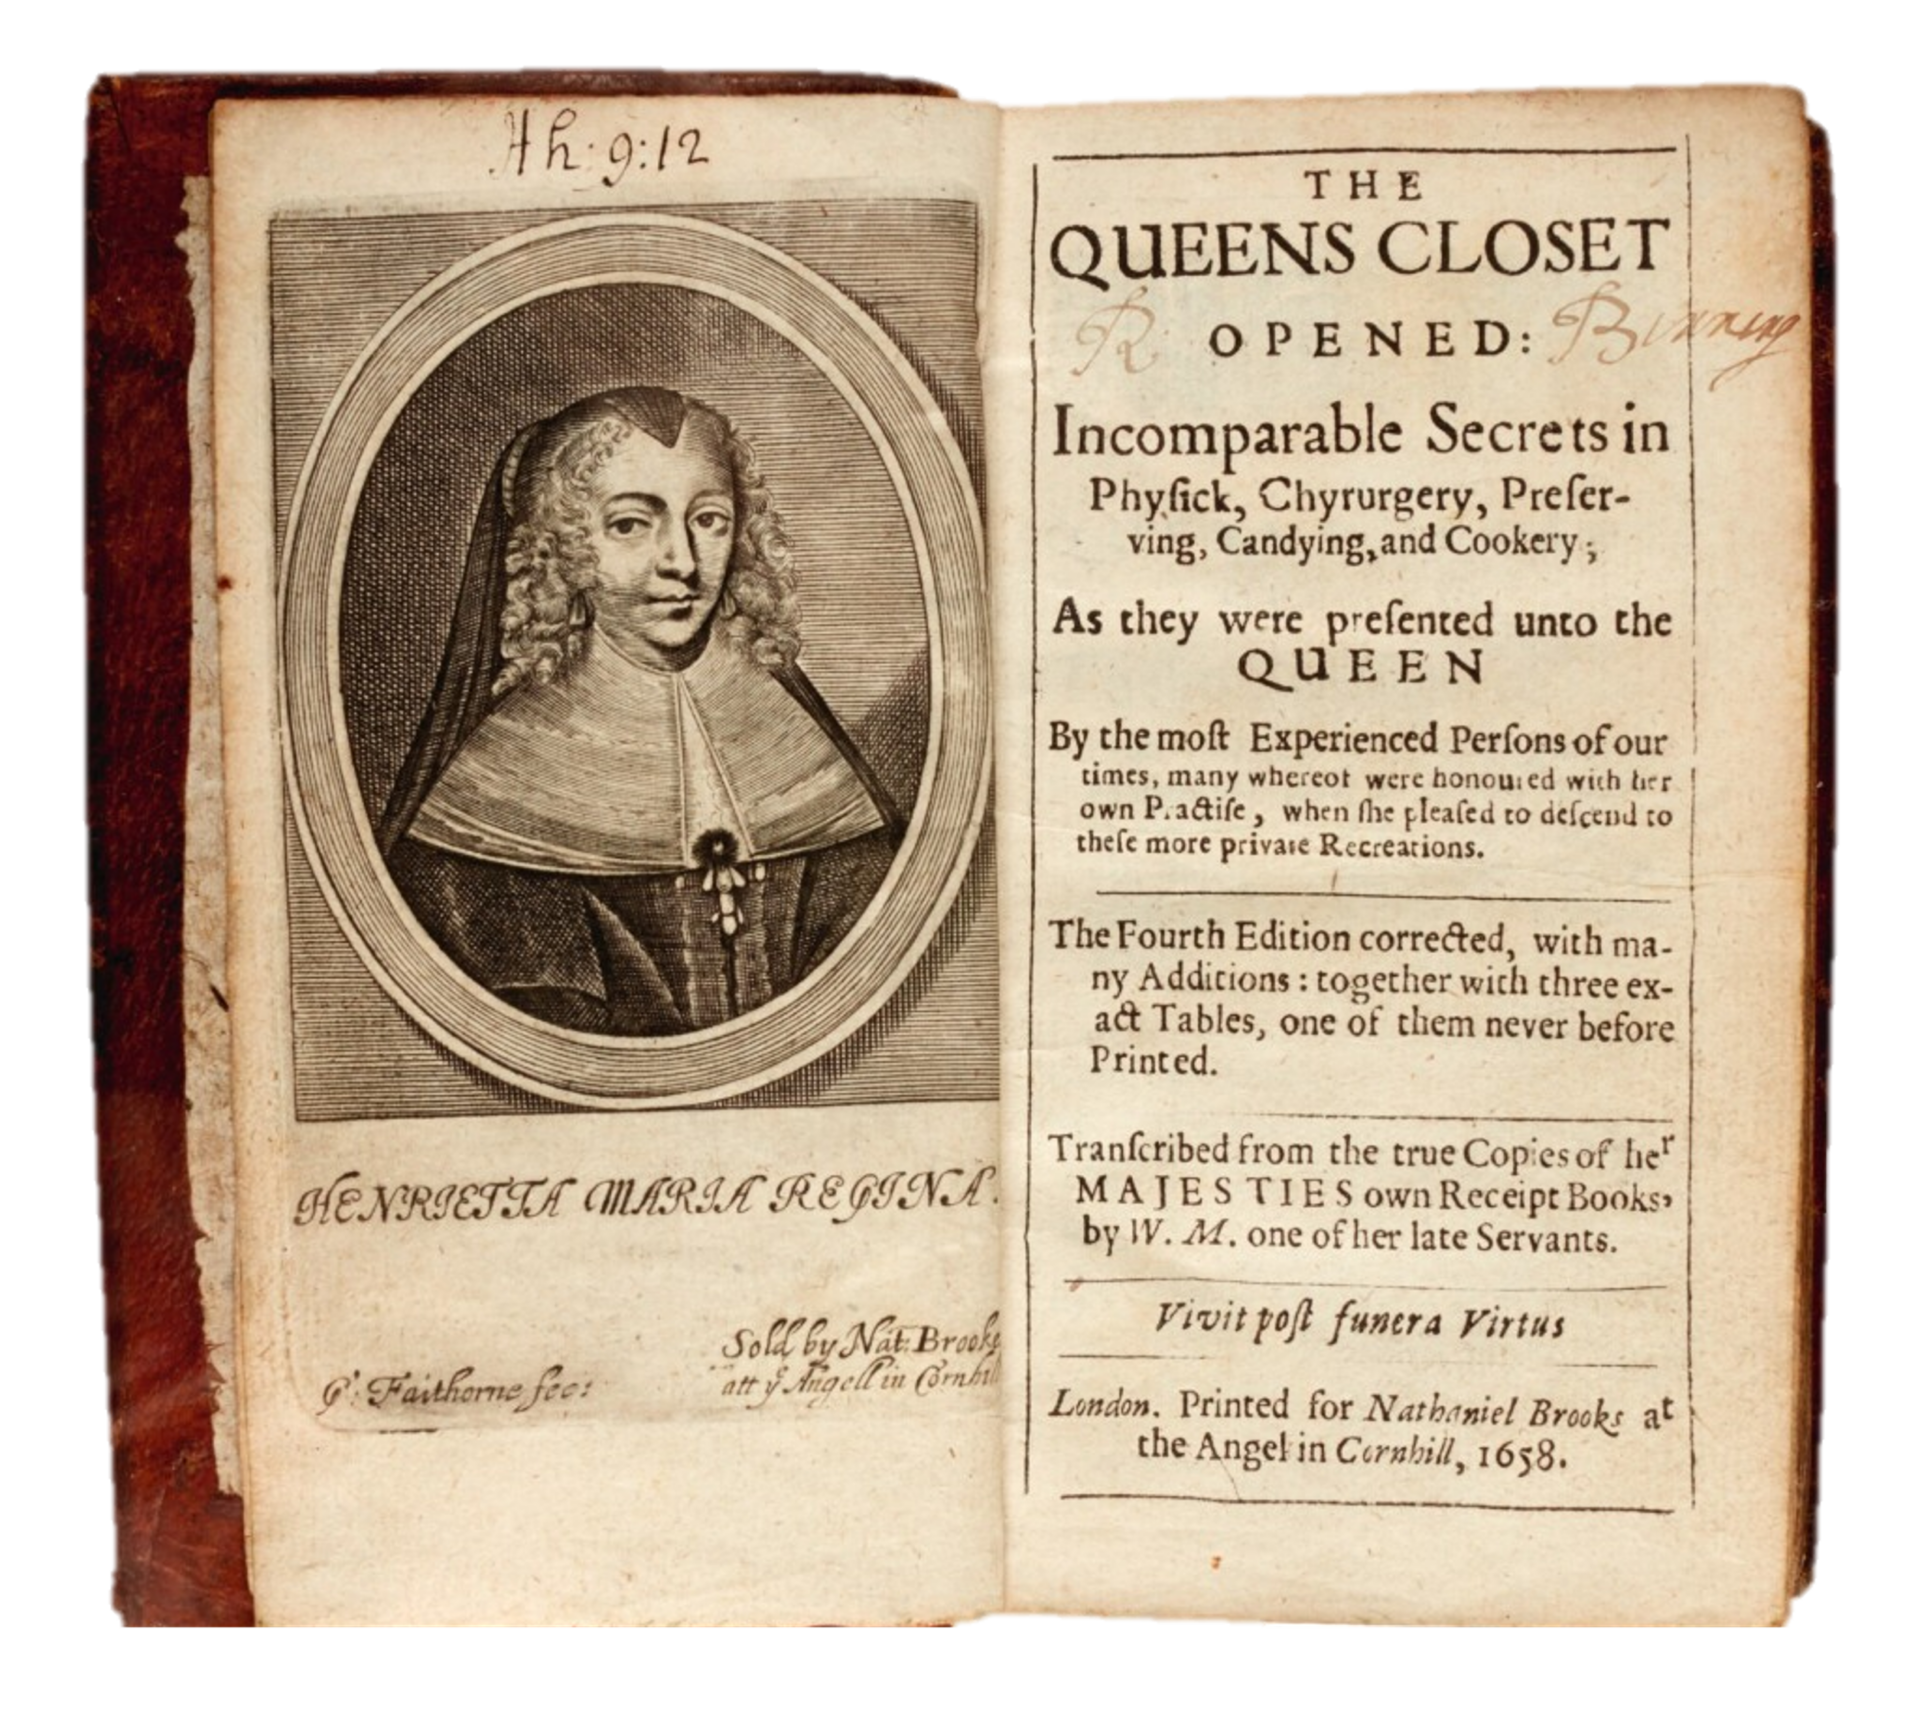 Ah: 9:12
HENRIETTA MARIA REGINA.
Sold by Nat: Brooks
att yͤ Angell in Cornhill
G: Faithorne fec:
THE
QUEENS CLOSET
OPENED:
R Binning
Incomparable Secrets in
Phyſick, Chyrurgery, Preſer-
ving, Candying, and Cookery;
As they were preſented unto the
QUEEN
By the moſt Experienced Perſons of our
times, many whereof were honoured with her
own Practiſe, when ſhe pleaſed to deſcend to
theſe more private Recreations.
The Fourth Edition corrected, with ma-
ny Additions: together with three ex-
act Tables, one of them never before
Printed.
Tranſcribed from the true Copies of her
MAJESTIES own Receipt Books,
by W. M. one of her late Servants.
Vivit poſt funera Virtus
London. Printed for Nathaniel Brooks at
the Angel in Cornhill, 1658.